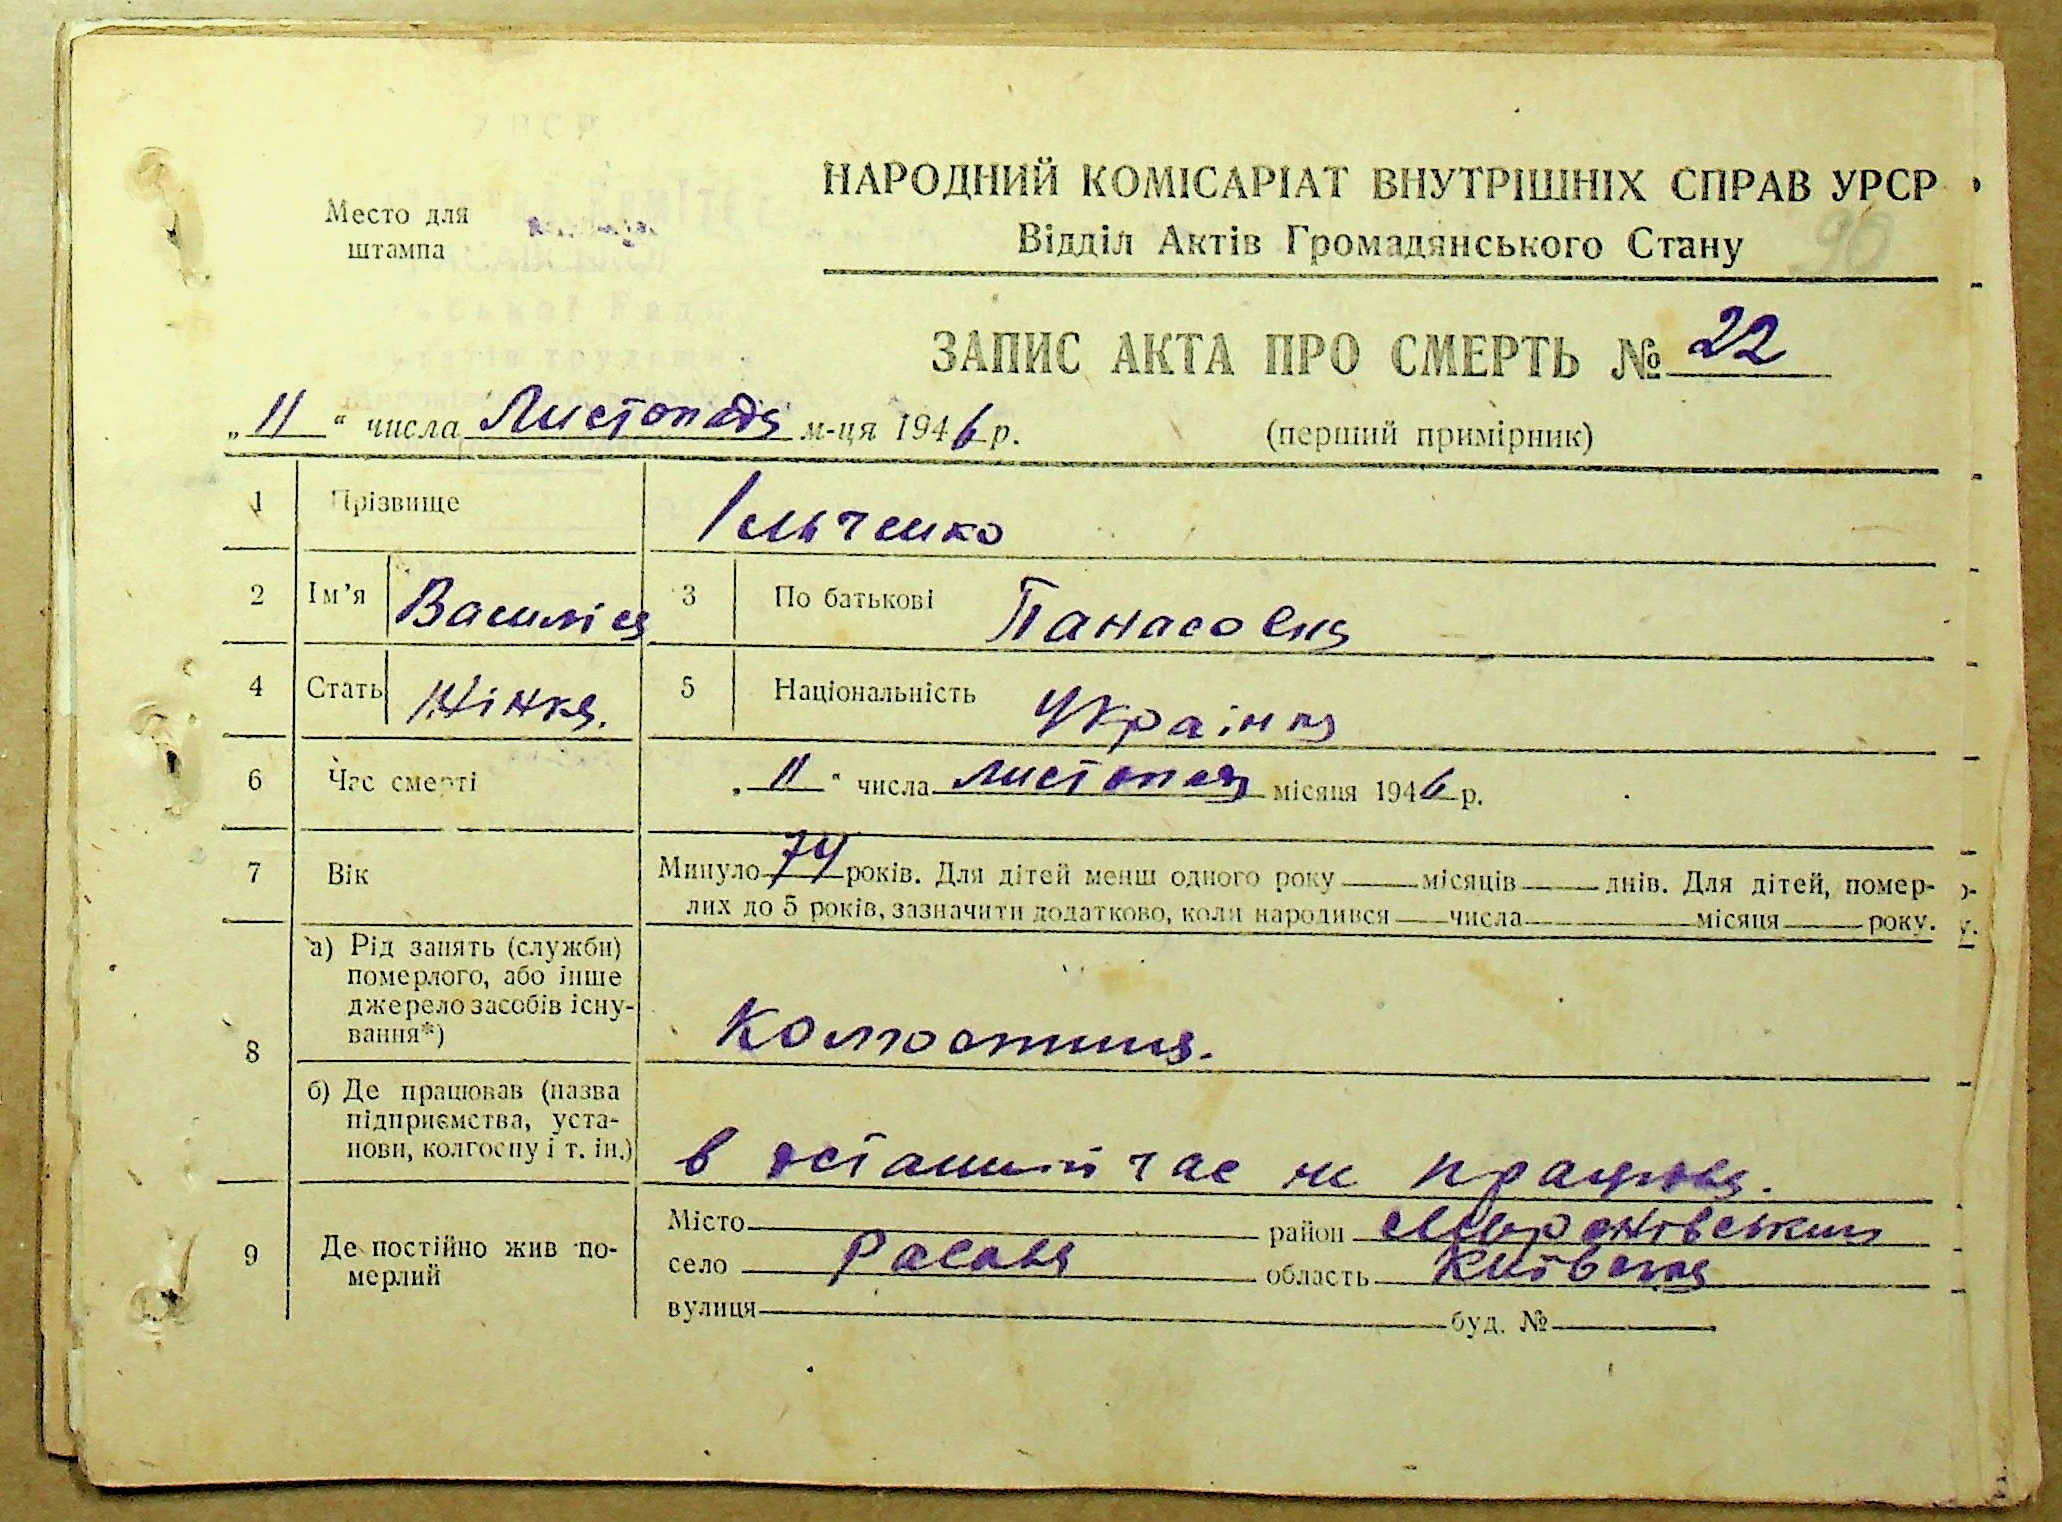 Место для
штампа
НАРОДНИЙ КОМІСАРІАТ ВНУТРІШНІХ СПРАВ УРСР
Відділ Актів Громадянського Стану
90
ЗАПИС АКТА ПРО СМЕРТЬ № 22
„ 11 " числа Листопада м-ця 1946 р.
(перший примірник)
1 Прізвище Ільченко
2 Ім'я Василіса 3 По батькові Панасовна
4 Стать Жінка. 5 Національність Українка
6 Час смерті „ 11 " числа листопада місяця 1946 р.
7 Вік Минуло 74 років. Для дітей менш одного року місяців днів. Для дітей, помер-
лих до 5 років, зазначити додатково, коли народився числа місяця року.
8 а) Рід занять (служби)
померлого, або інше
джерело засобів існу-
вання*)
Колгоспниця.
б) Де працював (назва
підприємства, уста-
нови, колгоспу і т. ін.)
в останній час не працювала.
9 Де постійно жив по-
мерлий
Місто район Миронівський
село Расава область Київська
вулиця буд. №